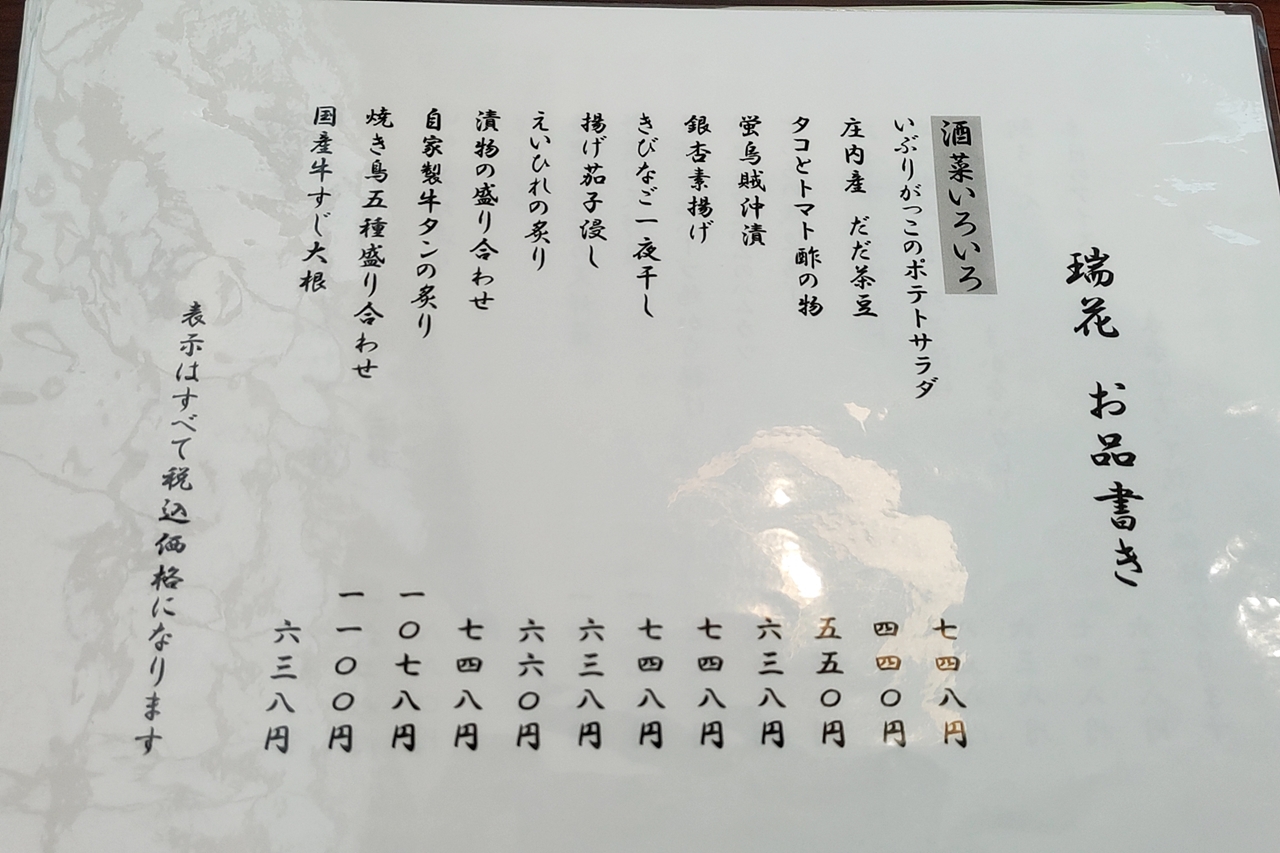 瑞花 お品書き
酒菜いろいろ
いぶりがっこのポテトサラダ 七四八円
庄内産 だだ茶豆 四四〇円
タコとトマト酢の物 五五〇円
蛍烏賊沖漬 六三八円
銀杏素揚げ 七四八円
きびなご一夜干し 七四八円
揚げ茄子浸し 六三八円
えいひれの炙り 六六〇円
漬物の盛り合わせ 七四八円
自家製牛タンの炙り 一〇七八円
焼き鳥五種盛り合わせ 一一〇〇円
国産牛すじ大根 六三八円
表示はすべて税込価格になります